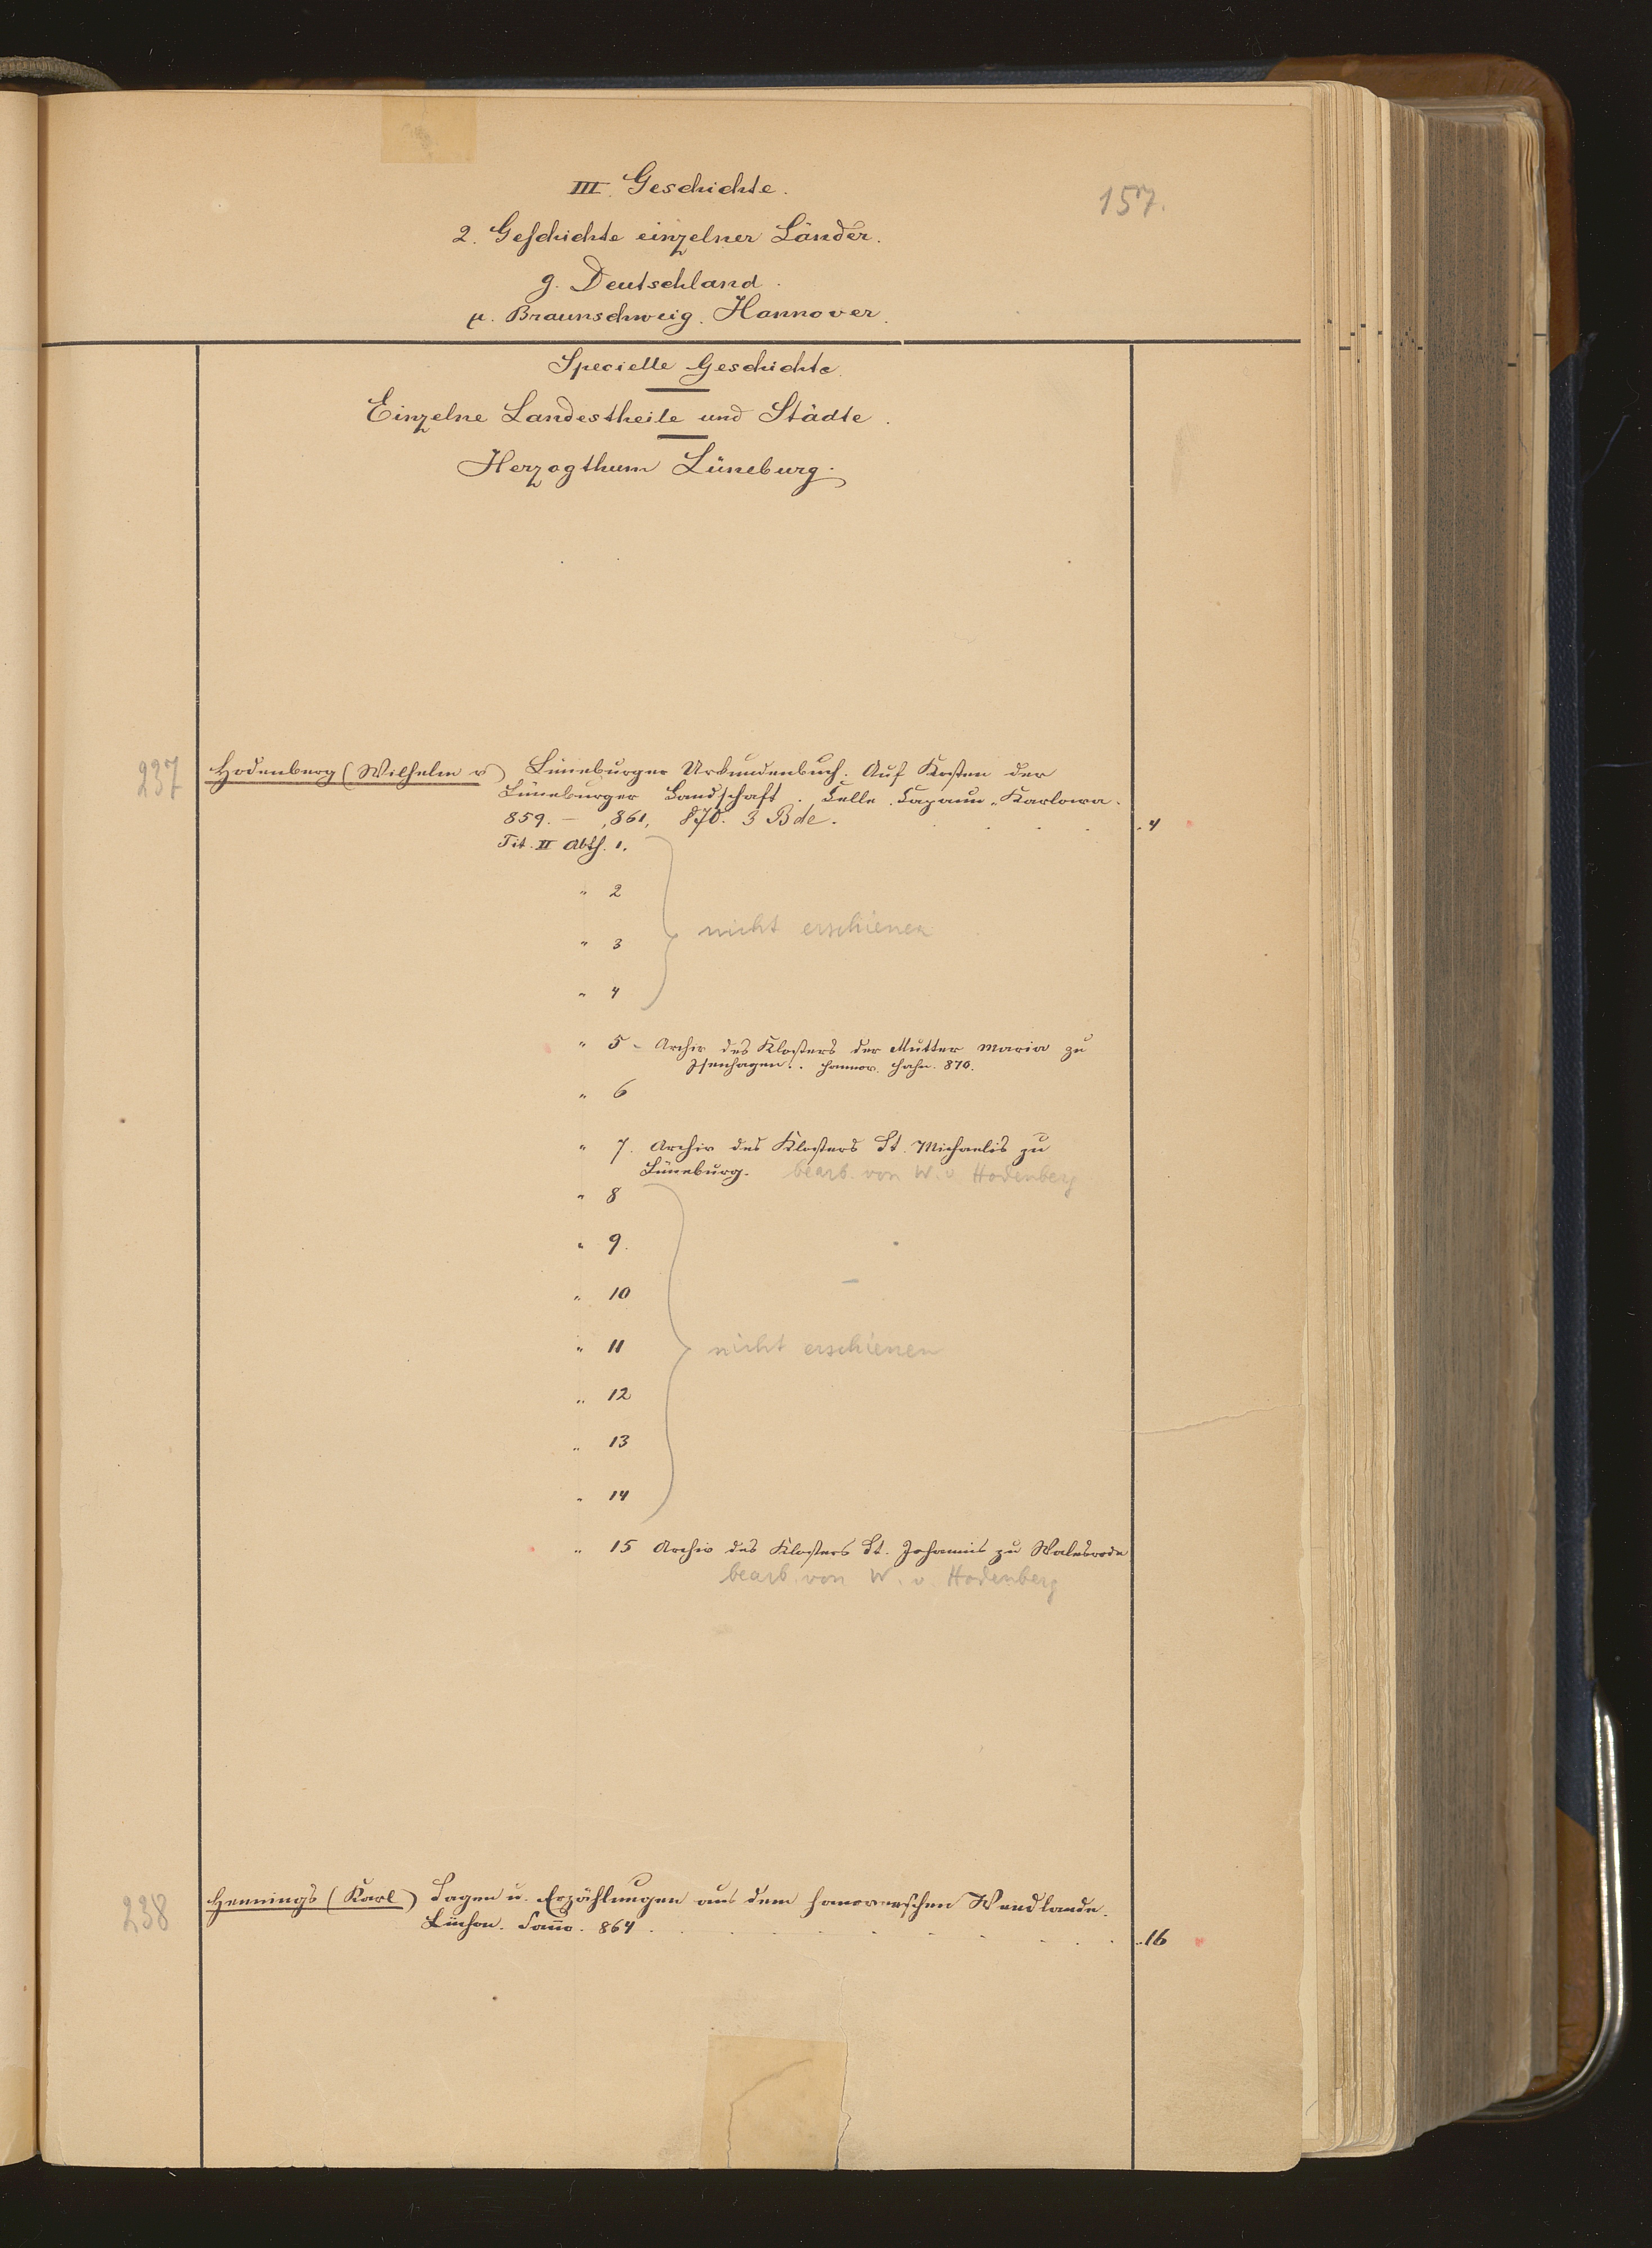 III. Geschichte.
157.
2. Geschichte einzelner Länder.
g. Deutschland.
μ. Braunschweig. Hannover.
Specielle Geschichte.
Einzelne Landestheile und Städte.
Herzogthum Lüneburg.
237 Hodenberg (Wilhelm v) Lüneburger Urkundenbuch. Auf Kosten der
Lüneburger Landschaft. Celle. Capaun-Karlowa.
859. – ,861, 870. 3 Bde. . . . . 4
Tit. II Abth. 1.
" 2
" 3
nicht erschienen
" 4
" 5 – Archiv des Klosters der Mutter Maria zu
Isenhagen. . Hannov. Hahn. 870.
" 6
" 7. Archiv des Klosters St. Michaelis zu
Lüneburg. bearb. von W. v. Hodenberg
" 8
" 9.
" 10
" 11 nicht erschienen
" 12
" 13
" 14
" 15 Archiv des Klosters St. Johannis zu Walsrode
bearb. von W. v. Hodenberg
238 Hennings (Karl) Sagen u. Erzählungen aus dem hanoverschen Wendlande.
Lüchow. 864 . . . . . . . . . 16